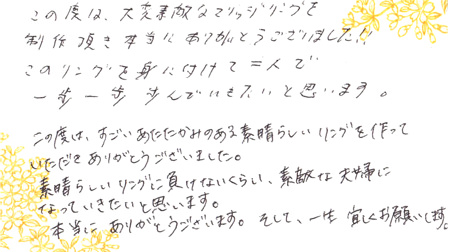 この度は、大変素敵なマリッジリングを
制作頂き本当にありがとうございました!!
このリングを身に付けて二人で
一歩一歩歩んでいきたいと思います。
この度は、すごいあたたかみのある素晴らしいリングを作って
いただきありがとうございました。
素晴らしいリングに負けないくらい、素敵な夫婦に
なっていきたいと思います。
本当にありがとうございます。そして、一生宜しくお願いします。